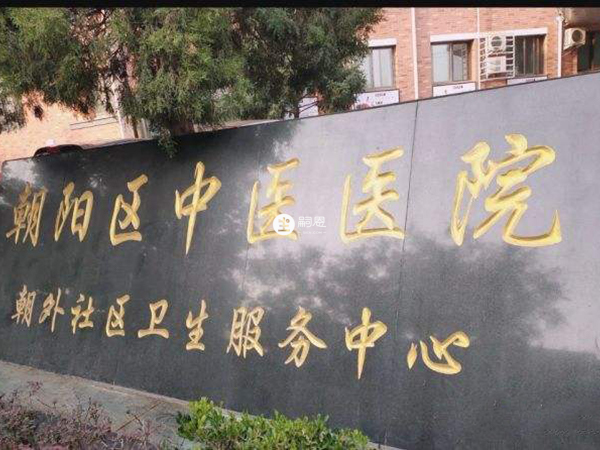 朝阳区中医医院
朝外社区卫生服务中心